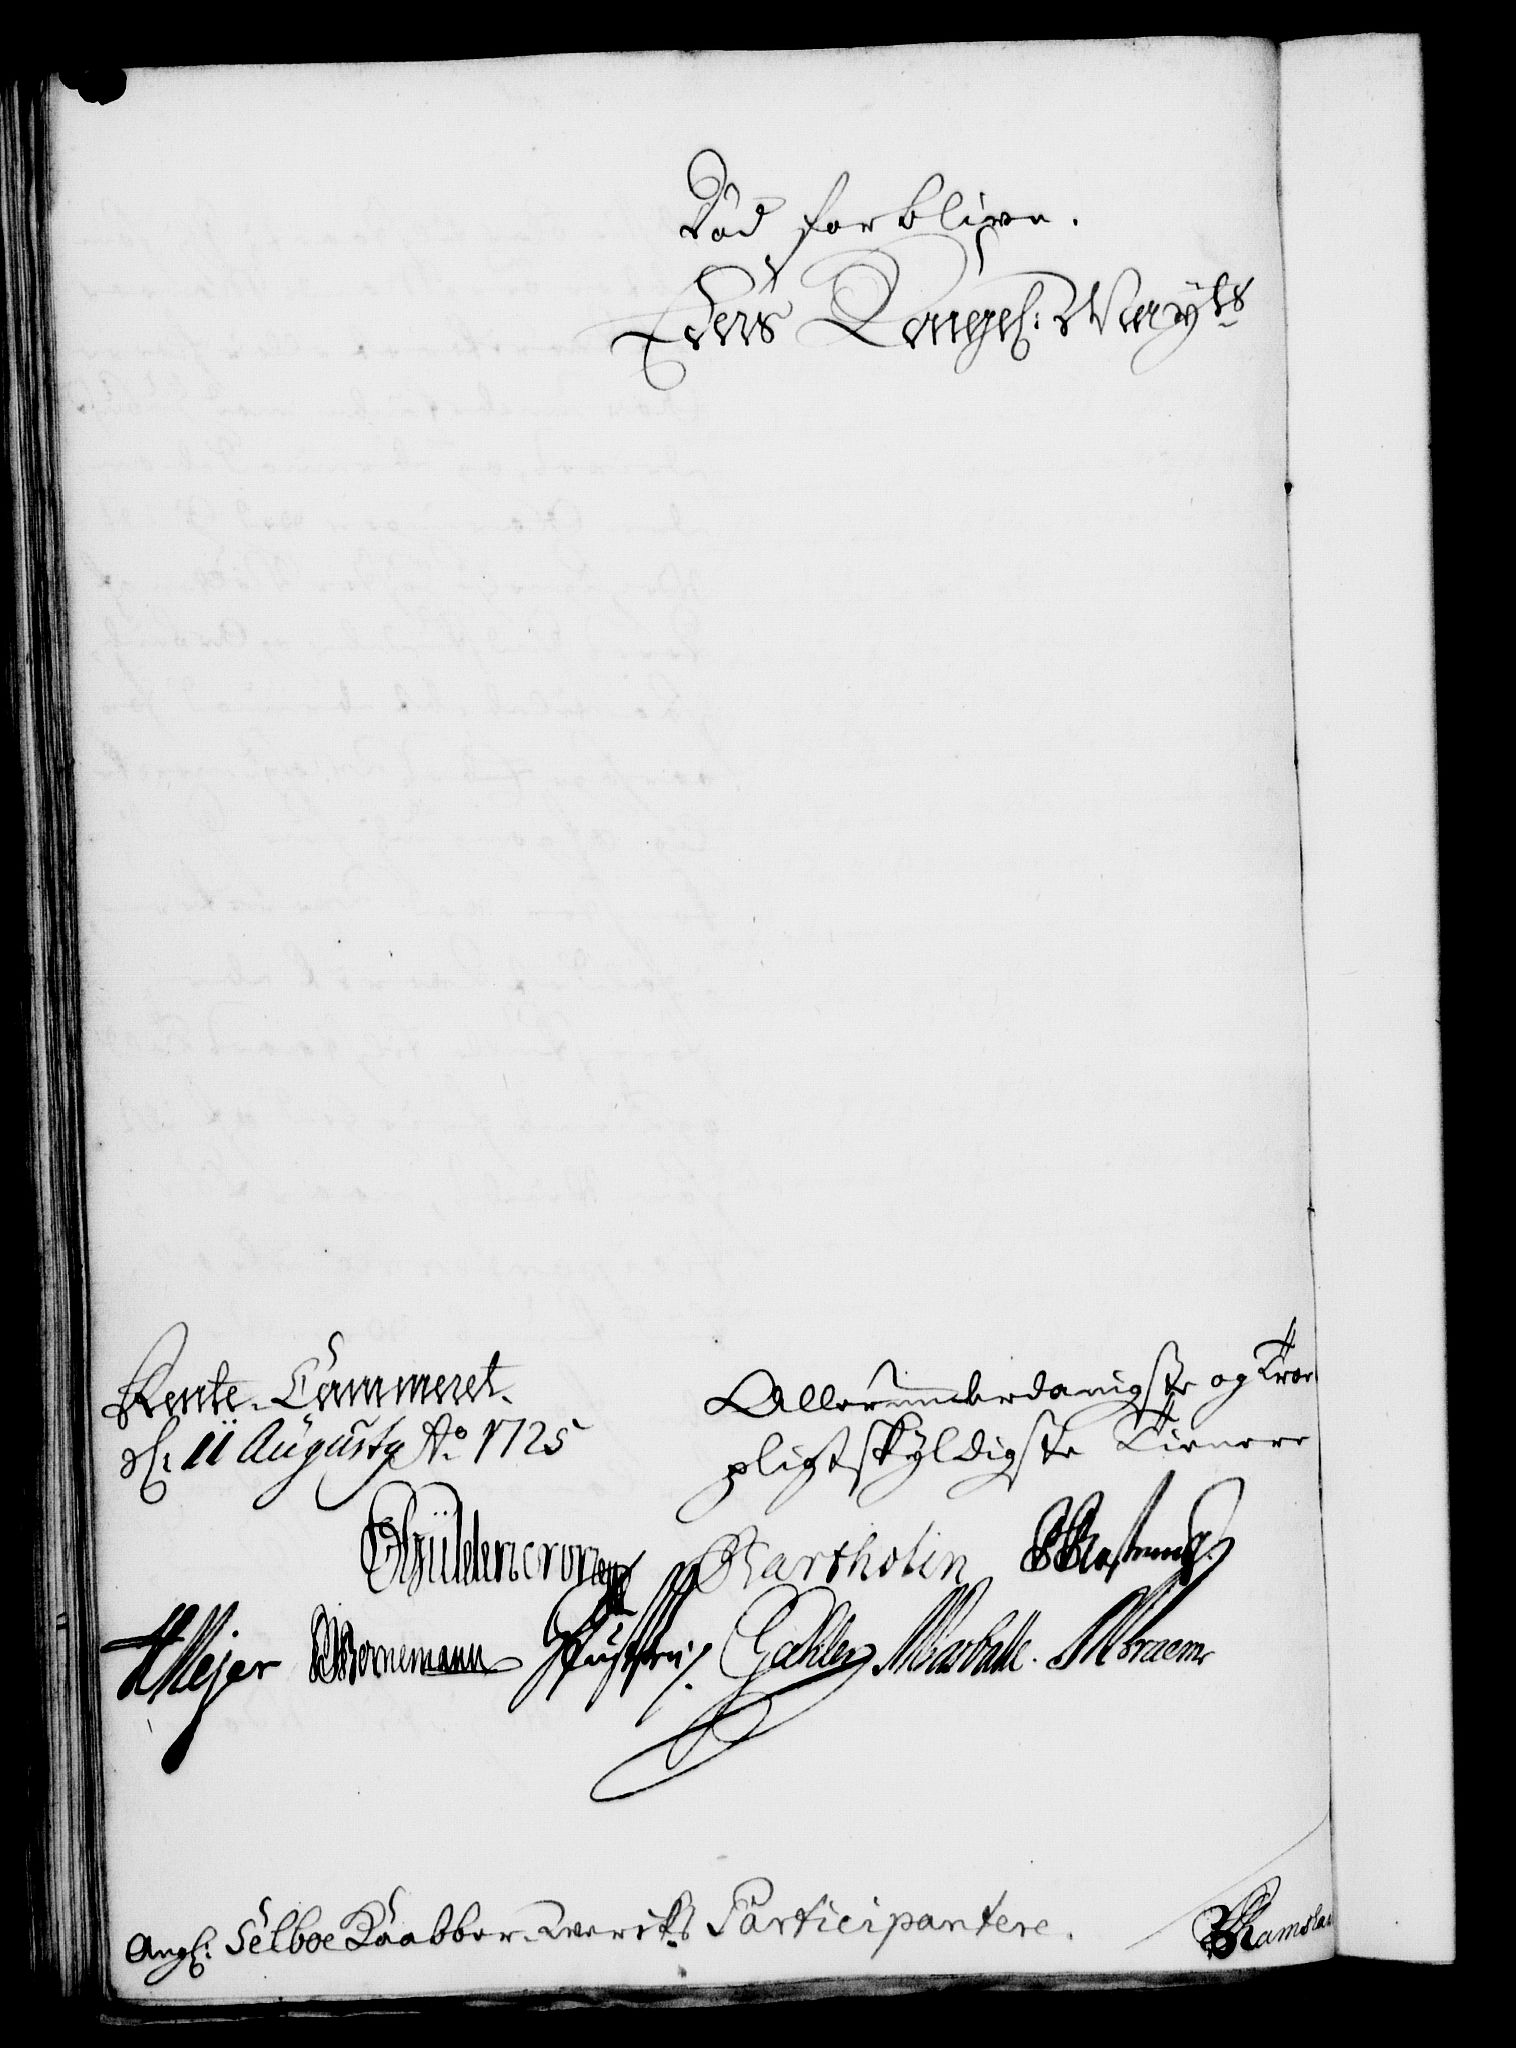 Död forblive.
Eders Kongel: Mayts
Rente-Cammeret
d: 11 Augusty Ao 1725
Allerunderdanigste og Troe
pligtskyldigste Tienere
Güldencrone Bartholin
Meyer Bornemann Gahler
Angl: Selboe Kaabber-Werks Participantere.